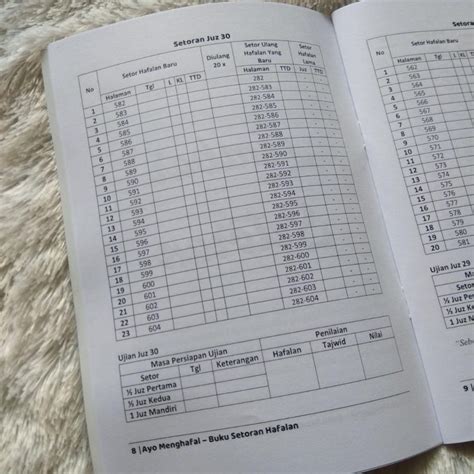 Setoran Juz 30
No Setor Hafalan Baru Diulang 20 x Setor Ulang Hafalan Yang Baru Setor Hafalan Lama
Halaman Tgl L KL TTD Halaman TTD Juz TTD
1 582 282 - -
2 583 282-583 - -
3 584 282-584 - -
4 585 282-585 - -
5 586 282-586 - -
6 587 282-587 - -
7 588 282-588 - -
8 589 282-589 - -
9 590 282-590 - -
10 591 282-591 - -
11 592 282-592 - -
12 593 282-593 - -
13 594 282-594 - -
14 595 282-595 - -
15 596 282-596 - -
16 597 282-597 - -
17 598 282-598 - -
18 599 282-599 - -
19 600 282-600 - -
20 601 282-601 - -
21 602 282-602 - -
22 603 282-603 - -
23 604 282-604 - -
Ujian Juz 30
Masa Persiapan Ujian Penilaian
Setor Tgl Keterangan Hafalan Tajwid Nilai
½ Juz Pertama
½ Juz Kedua
1 Juz Mandiri
8 |Ayo Menghafal – Buku Setoran Hafalan
No Setor Hafalan Baru
Halaman Tgl L KL
1 562
2 563
3 564
4 565
5 566
6 567
7 568
8 569
9 570
10 571
11 572
12 573
13 574
14 575
15 576
16 577
17 578
18 579
19 580
20 581
Ujian Juz 29
Masa
Setor
½ Juz Pertama
½ Juz Kedua
1 Juz Mandiri
9 |